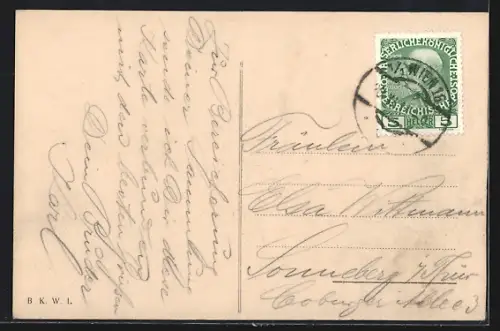 Zur Bereicherung
Deiner Sammlung
sende ich Dir diese
Karte verbunden
mit den besten Grüßen
Dein Bruder
Karl
B. K. W. I.
KAISERLICHE KÖNIGLICHE
ÖSTERREICHISCHE
5 5
WIEN
Fräulein
Elsa Wittmann
Sonneberg i/Thür
Coburger Allee 3